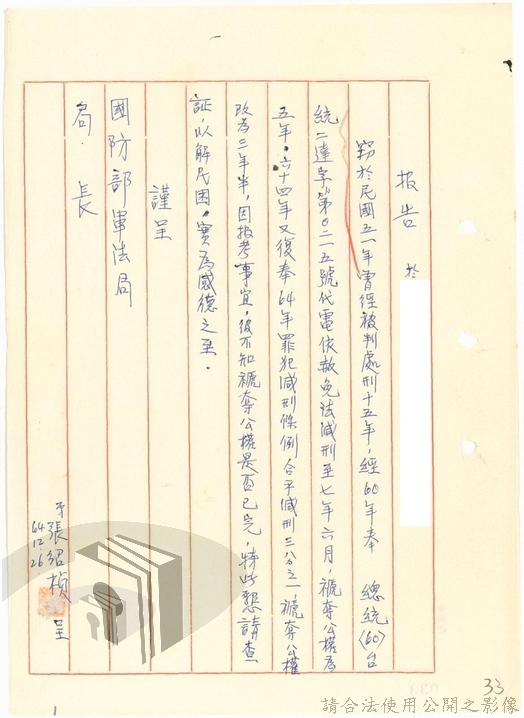 報告 於
竊於民國五一年曾經被判處刑十五年，經60年奉 總統〈60〉台
統二達字第0二一五號代電依赦免法減刑至七年六月，褫奪公權為
五年。六十四年又復奉64年罪犯減刑條例合予減刑二分之一褫奪公權
改為三年半，因報考事宜，彼不知褫奪公權是否已完，特此懇請查
証，以解民困，實為感德之至。
謹呈
國防部軍法局
局 長
張紹楨 呈
64.12.26
33
1
請合法使用公開之影像